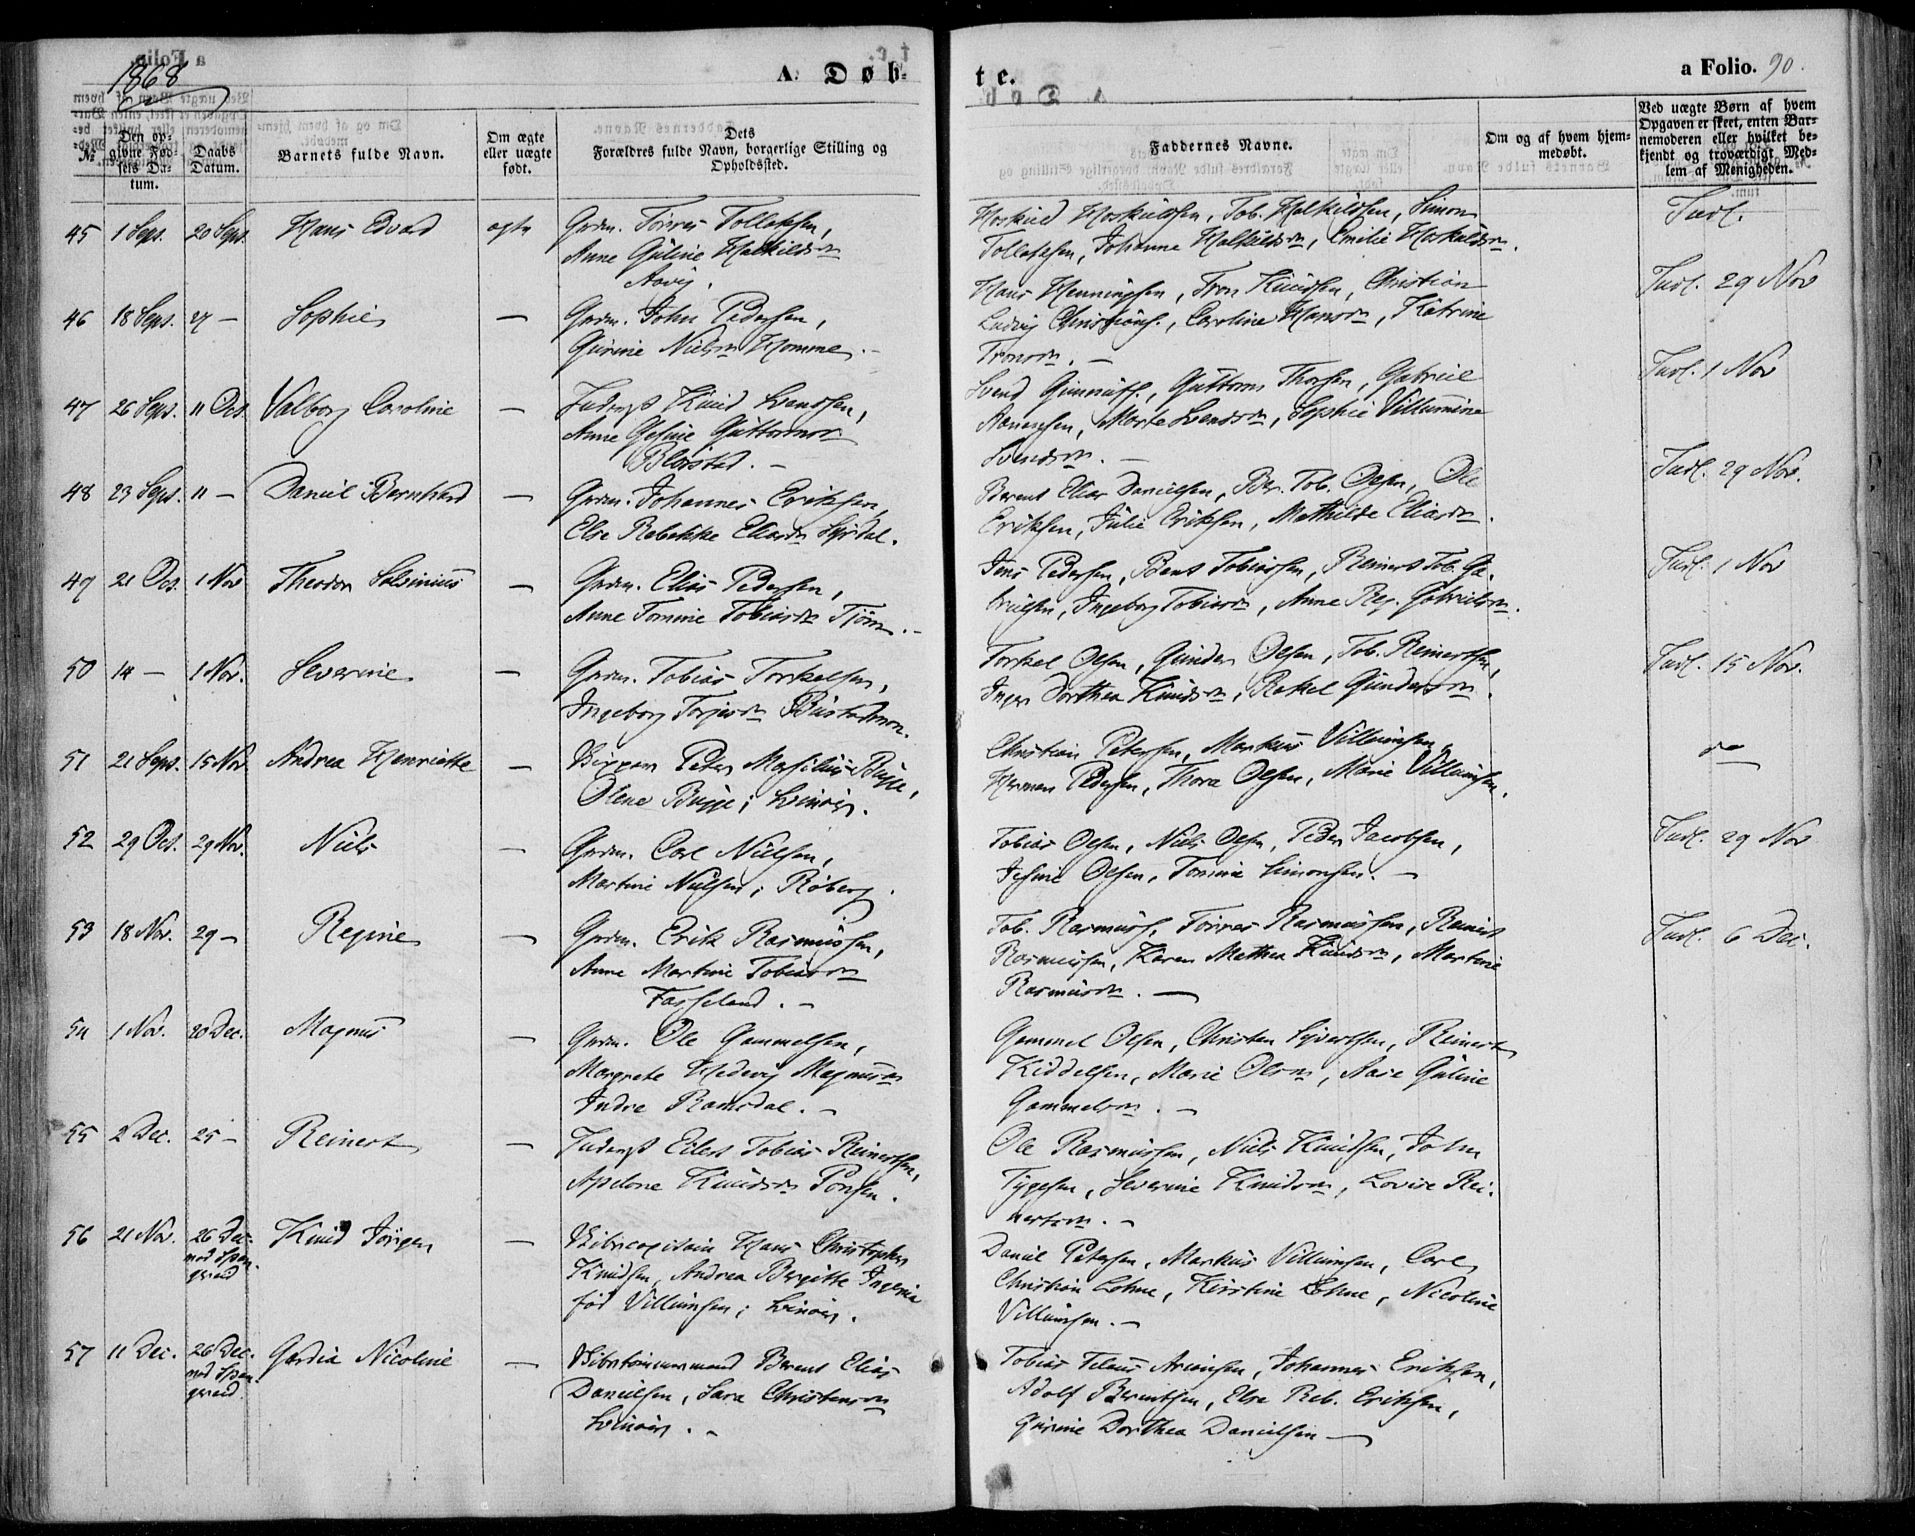 1868
A. Døb-
te.
a Folio. 90.
№
Den op-
givne Fød-
sels Da-
tum.
Daabs
Datum.
Barnets fulde Navn.
Om ægte
eller uægte
født.
Dets
Forældres fulde Navn, borgerlige Stilling og
Opholdssted.
Faddernes Navne.
Om og af hvem hjem-
medøbt.
Ved uægte Børn af hvem
Opgaven er skeet, enten Bar-
nemoderen eller hvilket be-
kjendt og troværdigt Med-
lem af Menigheden.
45 1 Sept. 20 Sept. Hans Edvard ægte Grdm. Tørres Tollaksen,
Anne Guline
46 18 Sept. 27 — Sophie — Grdm. John Pedersen,
Gurine Nielsdr Homme. —
Hans Henningsen, Tron Knudsen, Christian
Ludvig Christians., Caroline Hansdr, Katrine
Tronsdr. —
Indl. 29 Nov
47 26 Sept. 11 Oct. Valborg Caroline — Inderst Knud Svendsen,
Anne Gesine Guttormsdr
Svend Gunnuls., Guttorm Thorsen, Gabriel
Aanensen, Marte Svendsdr, Sophie Villumine
Svendsdr. —
Indl. 1 Nov
48 23 Sept. 11 — Daniel Berntard — Grdm. Johannes Eriksen,
Else Rebekke Eliasdr
Berent Elias Danielsen, Ber. Tob. Olsen, Ole
Eriksen, Julie Eriksen, Mathilde Eliasdr.
Indl. 29 Nov.
49 21 Oct. 1 Nov Theodor — Grdm. Elias Pedersen,
Anne Tomine Tobiasdr Tjørn. —
Jens Pedersen, Bent Tobiassen, Reinert Tob. Ga-
brielsen, Ingeborg Tobiasdr, Anne Reg. Gabrielsdr.
Indl. 1 Nov
50 14 — 1 Nov. Severine — Grdm. Tobias Torkelsen,
Ingeborg Torjusdr
Torkel Olsen, Gunder Olsen, Tob. Reinertsen,
Inger Dorthea Knudsdr, Rakel Gundersdr.
Indl. 15 Nov.
51 21 Sept. 15 Nov. Andrea Henriette — Skipper Peter Marsilius Bugge,
Olene Bugge; Svinør.
Christian Petersen, Markus Villumsen,
Herman Pedersen, Thora Olsen, Marie Villumsen.
52 29 Oct. 29 Nov. Niels — Grdm. Carl Nielsen,
Martine Nielsen; Røberg.
Tobias Olsen, Niels Olsen, Peder Jacobsen,
Jesine Olsen, Tomine Simonsen. —
Indl. 29 Nov
53 18 Nov. 29 — Regine — Grdm. Erik Rasmussen,
Anne Martine Tobiasdr
Fasseland. —
Tob. Rasmuss., Tørres Rasmussen, Reinert
Rasmussen, Karen Mathea Knudsdr, Martine
Rasmusdr. —
Indl. 6 Dec.
54 1 Nov. 20 Dec. Magnus — Grdm. Ole Gammelsen,
Margrete Hedevig Magnusdr
Indre Ramsdal. —
Gammel Olsen, Christen Syvertsen, Reinert
Kiddelsen, Marie Olsdr, Aase Guline
Gammelsdr. —
55 2 Dec. 25 — Reinert — Inderst Eilert Tobias Reinertsen,
Apelone Knudsdr
Ole Rasmussen, Niels Knudsen, John
Tygesen, Severine Knudsdr, Lovise Rei-
nertsdr. —
56 21 Nov. 26 Dec. Knud Jørgen — Skibscapitain Hans Christopher
Knudsen, Andrea Birgitte
fød Villumsen; Svinør.
Daniel Petersen, Markus Villumsen, Carl
Christian Lohne, Kirstine Lohne, Nicoline
Villumsen. —
57 11 Dec. 26 Dec. Nicoline — Skibstømmermand Berent Elias
Danielsen, Sara Christensdr
Svinør. —
Tobias Ariansen, Johannes Eriksen,
Adolf Berntsen, Else Reb. Eriksen,
Gurine Dorthea Danielsen —